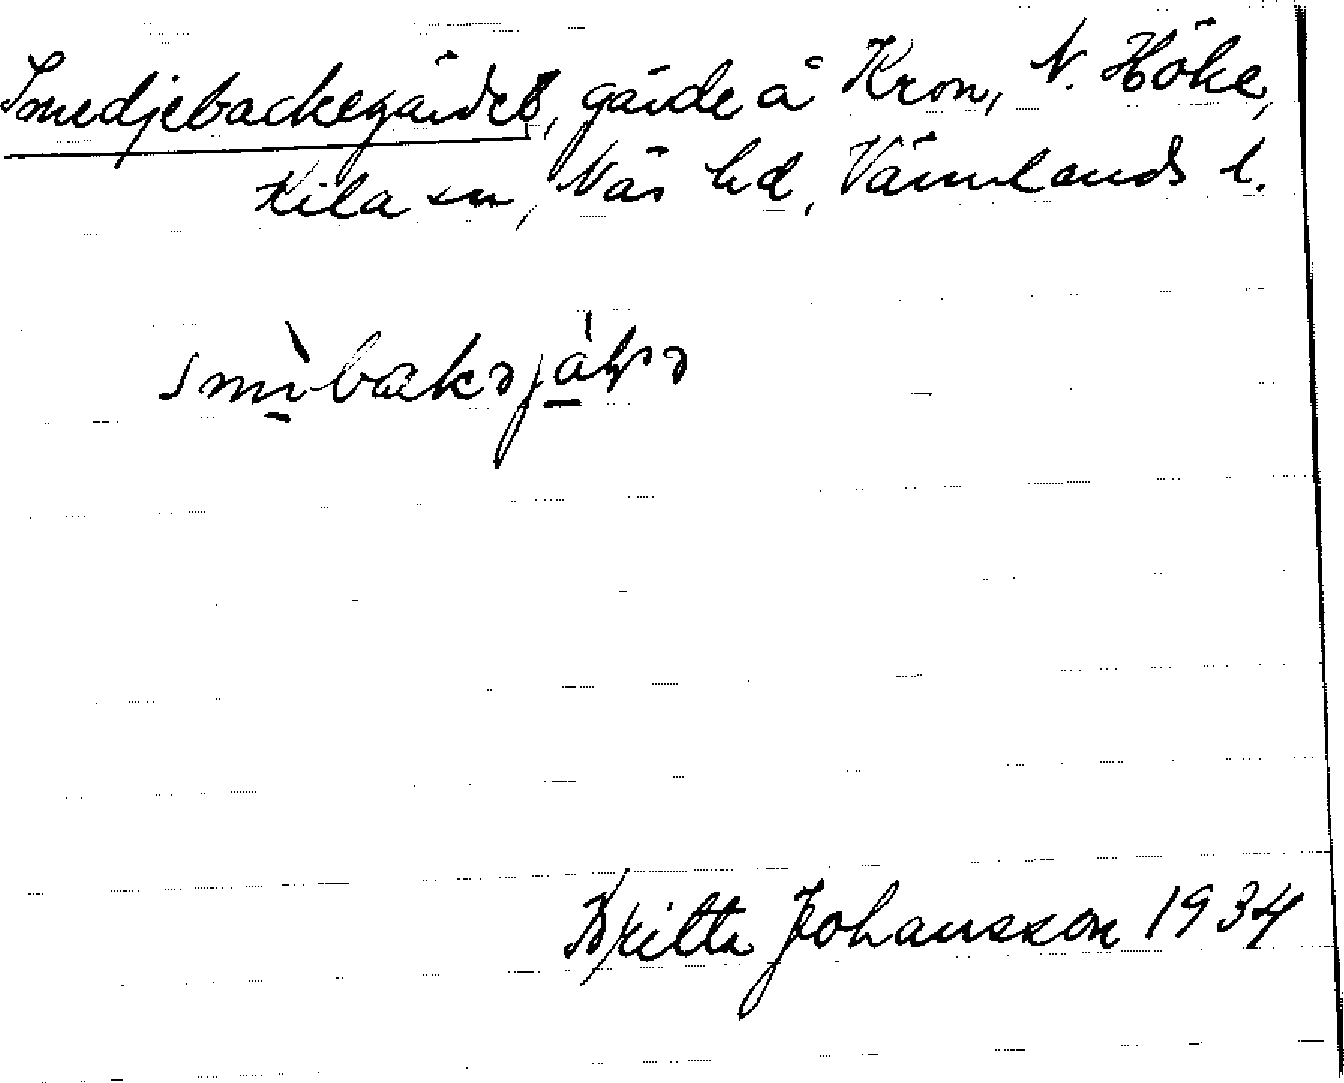 Smedjebackegärdet, gärde å Kron, N. Höke,
Kila sn, Näs hd, Värmlands l.
Britta Johansson 1934